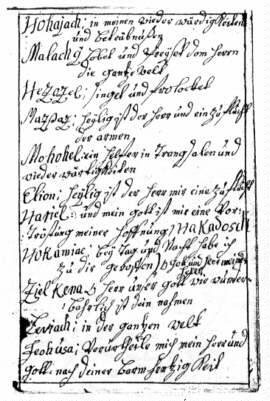 Hohajah; in meinen wieder würdigkeiten
und betrübnüßen
Malachÿ Lobet und Preyset dem herrn
die gantze welt
Hezazel; singet und frolocket
Mazpaz; heylig ist der herr und ein zuflucht
der armen
Mohohel: ein helffer in trangsalen und
wieder wärtigkeiten
Elion; heylig ist der herr mir eine zuflucht
Hariel: und mein gott ist mir eine Vor:
tröstung meiner hoffnung Hakadosch
Hokamiac; bey tag und Nacht habe ich
zu dir geboffen
Ziel Kena herr unser gott wie wunder
bahrlich ist dein nahmen
Leviach; in der gantzen welt
Jeohusa; Verurtheile mich mein herr und
gott: nach deiner barmhertzigkeit